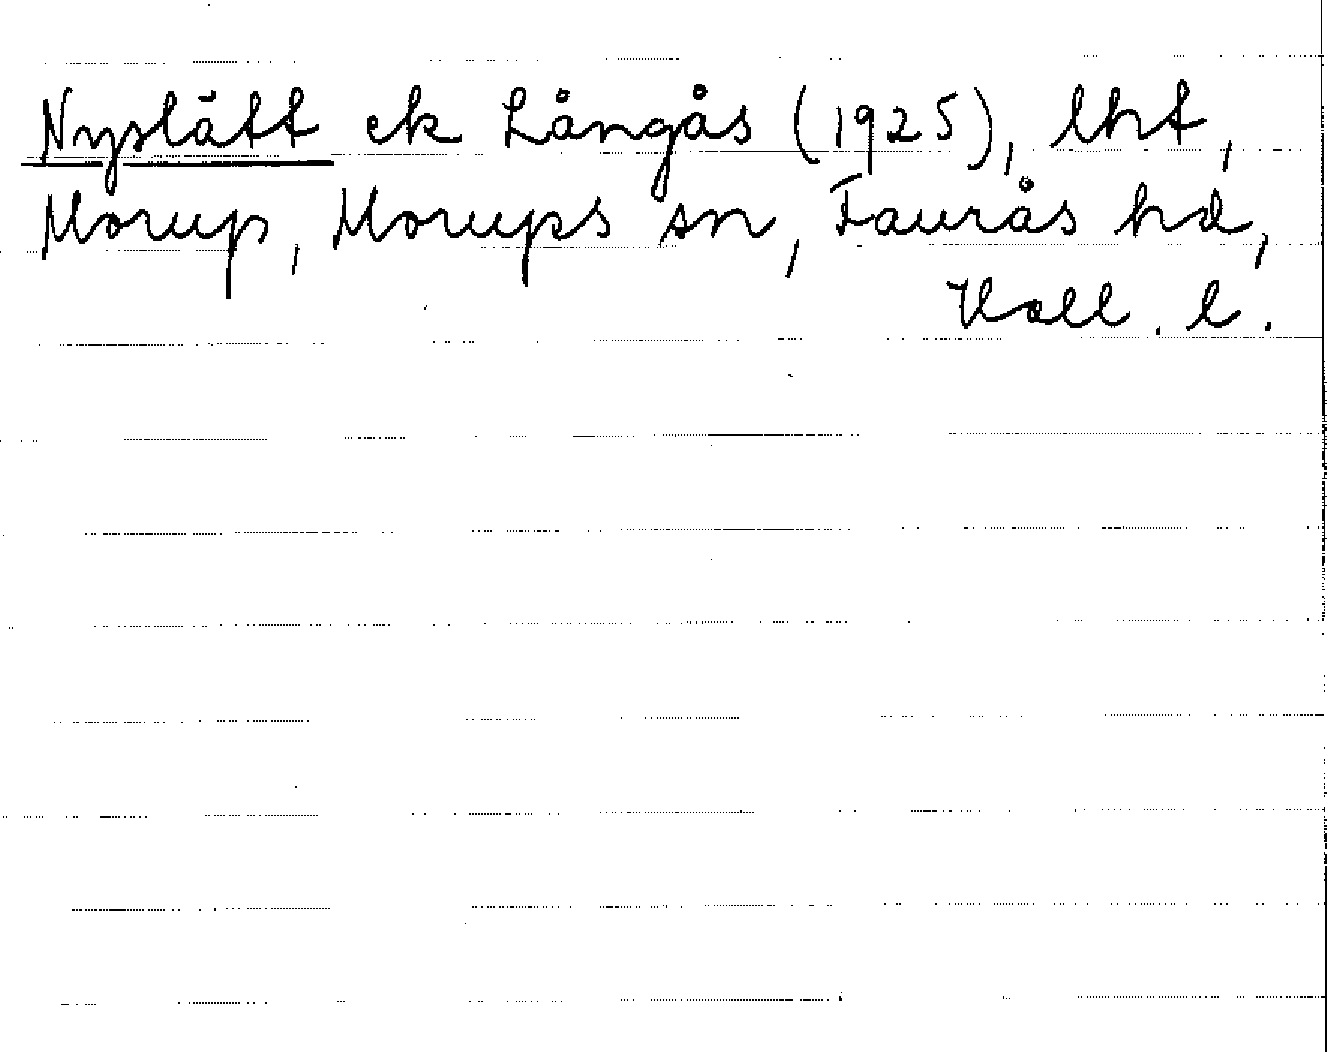 Nyslätt ek Långås (1925), lht,
Morup, Morups sn, Faurås hd,
Hall. l.